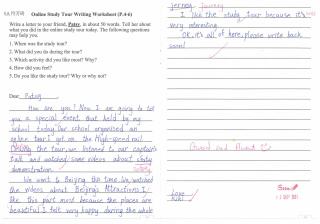 Online Study Tour Writing Worksheet (P.4-6)
Write a letter to your friend, Patsy, in about 50 words. Tell her about
what you did in the online study tour today. The following questions
may help you.
1. When was the study tour?
2. What did you do during the tour?
3. Which activity did you like most? Why?
4. How did you feel?
5. Do you like the study tour? Why or why not?
Dear Patsy
How are you? Now I am going to tell
you a special event that held by my
school today. Our school organised an
online tour. I got on the High-speed rail.
During the tour, we listened to our captain's
talk and watched some videos about
demonstration.
We went to Beijing this time. We watched
the videos about Beijing's Attractions. I
like this part most because the places are
beautiful. I felt very happy during the whole
jerney. journey
I like the study tour because it's
very interesting.
OK, it's all of here, please write back
soon!
Good and fluent
Love
Kiki